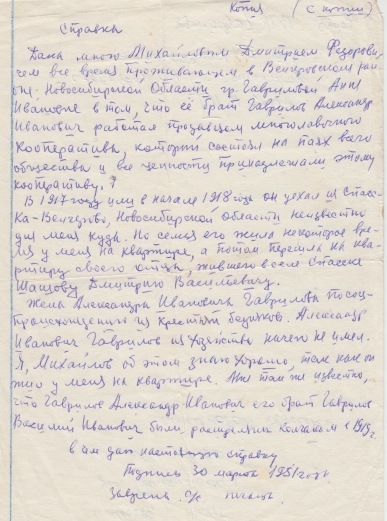 Копия (с копии)
Справка
Дана мною Михайловым Дмитрием Федорови-
чем все время проживающем в Венгеровском рай-
оне Новосибирской Области гр. Гавриловой Анне
Ивановне в том, что её брат Гаврилов Александр
Иванович работал продавцем многолавочного
кооператива, который состоял на паях всего
общества и все ценности принадлежали этому
кооперативу.
В 1917 году или в начале 1918 года он уехал из Спасс-
ка-Венгерово, Новосибирской области неизвестно
для меня куда. Но семья его жила некоторое вре-
мя у меня на квартире, а потом перешла на ква-
ртиру своего отца, жившего в селе Спасске
Дмитрию Васильевичу.
Жена Александра Ивановича Гаврилова по соц-
происхождению из крестьян бедняков. Александр
Иванович Гаврилов из хозяйства ничего не имел.
Я, Михайлов об этом знаю хорошо, так как он
жил у меня на квартире. Мне так же известно,
что Гаврилов Александр Иванович его брат Гаврилов
Василий Иванович были расстреляны Колчаком в 1919 г.
в чем даю настоящую справку
Подпись 30 марта 1951 года
Заверена с/с печать